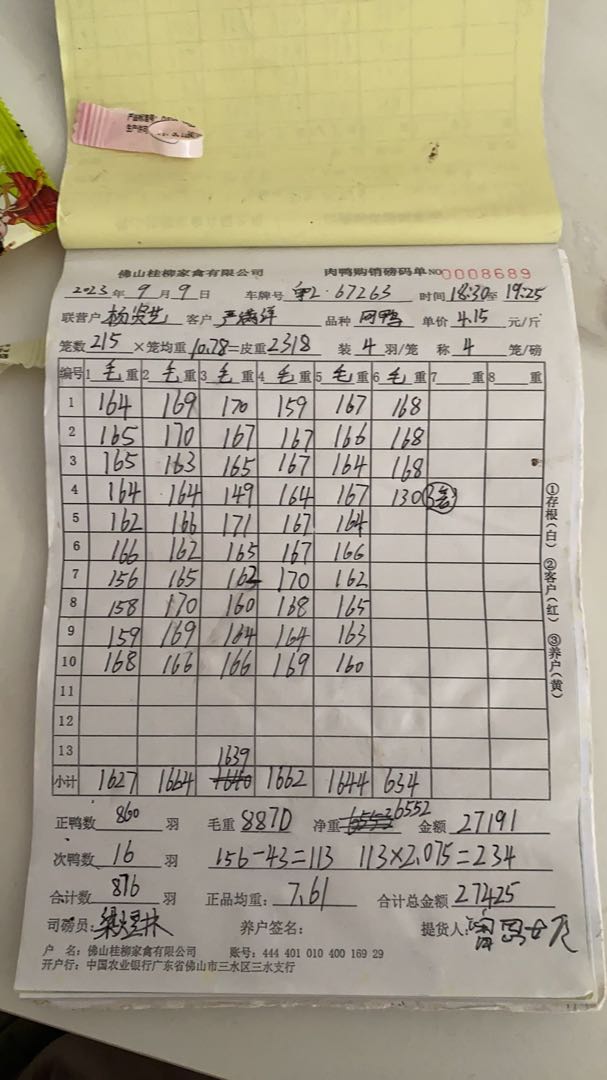 产品标准号
生产许可
佛山桂柳家禽有限公司 肉鸭购销磅码单 NO 0008689
2023年 9月 9日 车牌号 67263 时间 18:30至 19:25
联营户 客户 品种 单价 4.15 元/斤
笼数 215 ×笼均重 10.78=皮重 2318 装 4 羽/笼 称 4 笼/磅
编号 1 毛重 2 毛重 3 毛重 4 毛重 5 毛重 6 毛重 7 重 8 重
1 164 169 170 159 167 168
2 165 170 167 167 166 168
3 165 163 165 167 164 168
4 164 164 149 164 167 130
5 162 166 171 167 164
6 166 162 165 167 166
7 156 165 162 170 162
8 158 170 160 168 165
9 159 169 164 164 163
10 168 166 166 169 160
11
12
13
小计 1627 1664 1639 1662 1644 634
正鸭数 860 羽 毛重 8870 净重 6552 金额 27191
次鸭数 16 羽 156-43=113 113×2.075=234
合计数 876 羽 正品均重: 7.61 合计总金额 27425
司磅员: 养户签名: 提货人:
户 名: 佛山桂柳家禽有限公司 账号: 444 401 010 400 169 29
开户行: 中国农业银行广东省佛山市三水区三水支行
①存根(白) ②客户(红) ③养户(黄)